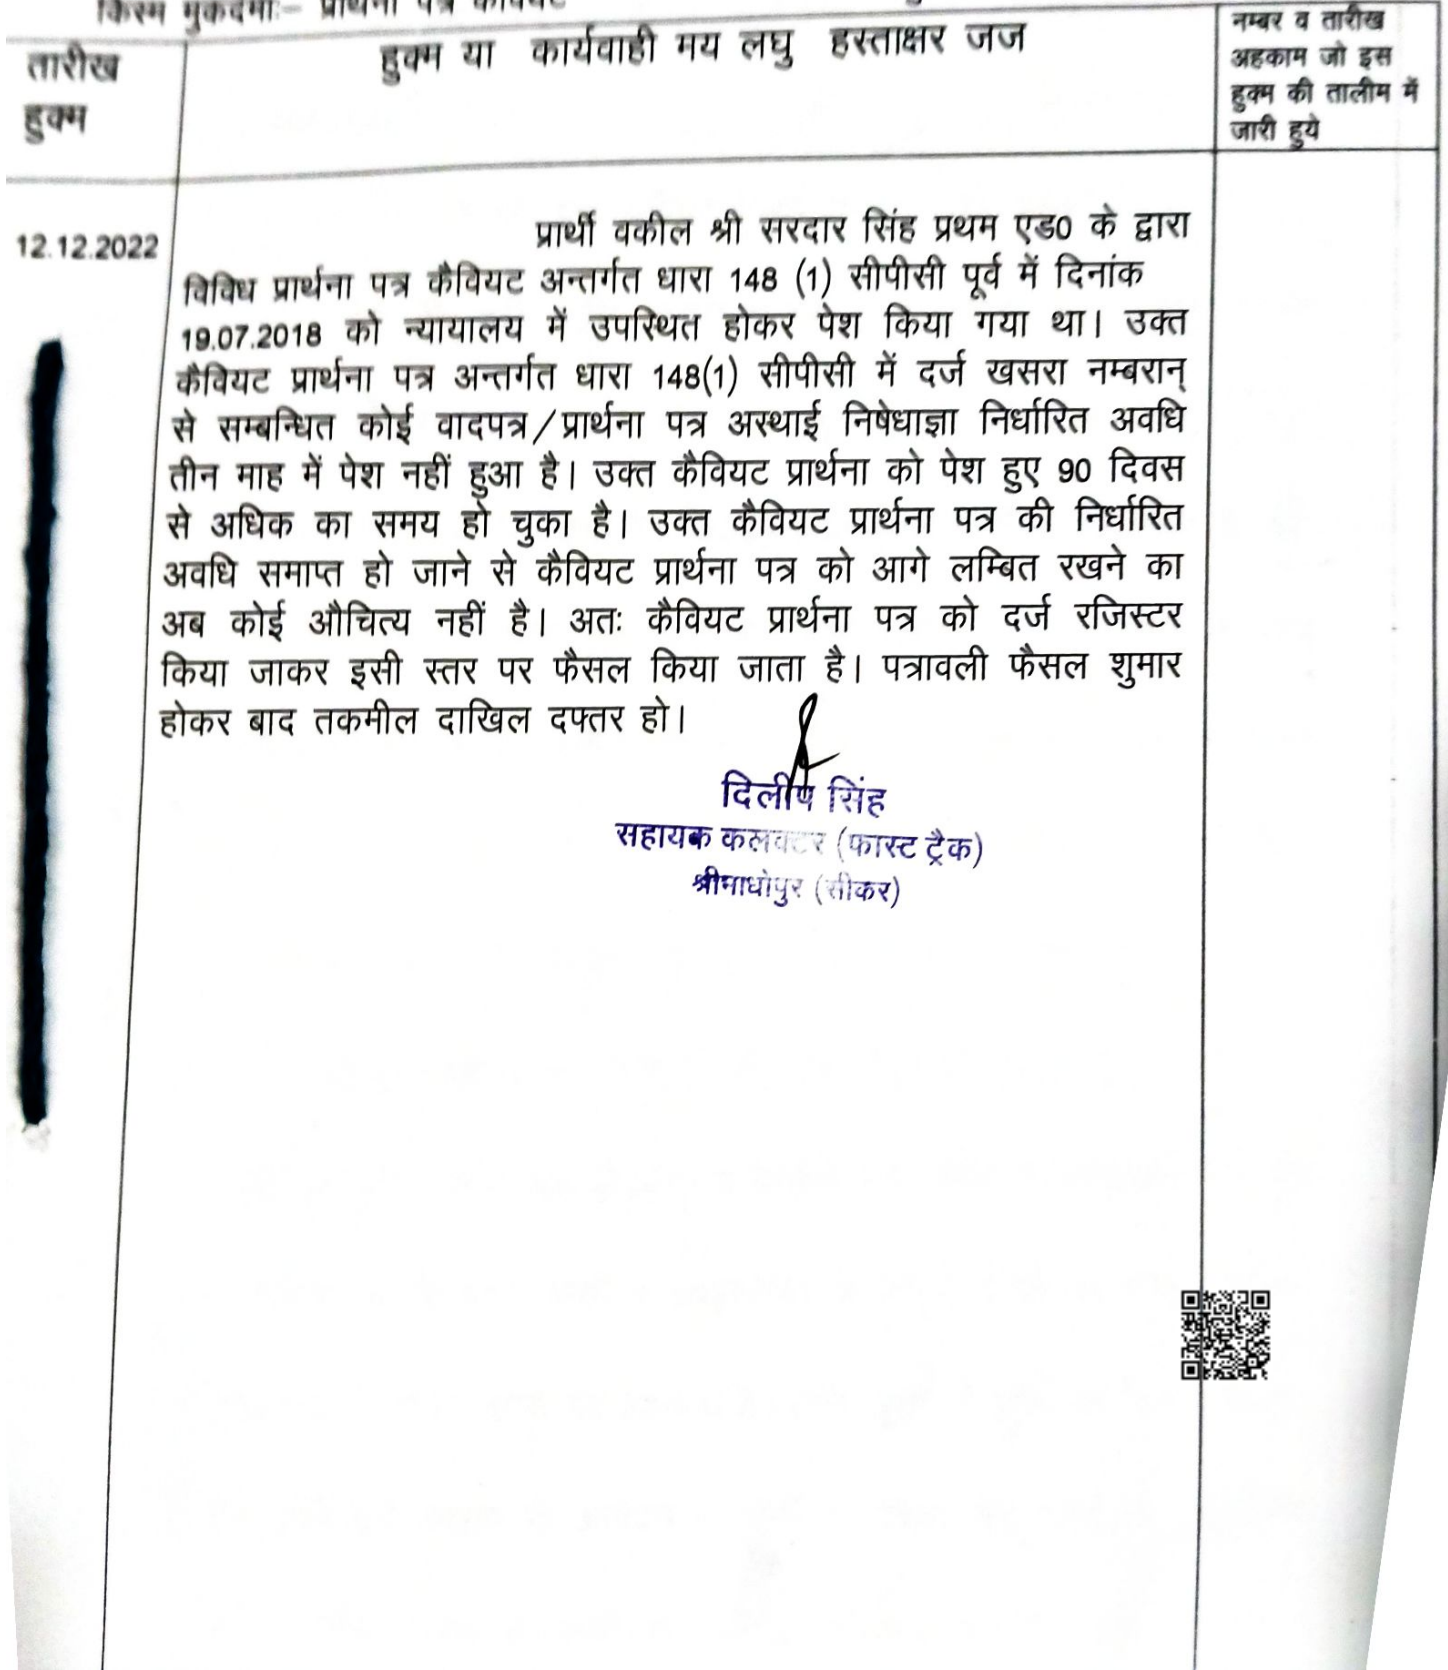 किस्म मुकदमाः– प्रार्थना पत्र कैवियट
तारीख
हुक्म
हुक्म या कार्यवाही मय लघु हस्ताक्षर जज
नम्बर व तारीख
अहकाम जो इस
हुक्म की तालीम में
जारी हुये
12.12.2022
प्रार्थी वकील श्री सरदार सिंह प्रथम एड0 के द्वारा
विविध प्रार्थना पत्र कैवियट अन्तर्गत धारा 148 (1) सीपीसी पूर्व में दिनांक
19.07.2018 को न्यायालय में उपस्थित होकर पेश किया गया था। उक्त
कैवियट प्रार्थना पत्र अन्तर्गत धारा 148(1) सीपीसी में दर्ज खसरा नम्बरान्
से सम्बन्धित कोई वादपत्र/प्रार्थना पत्र अस्थाई निषेधाज्ञा निर्धारित अवधि
तीन माह में पेश नहीं हुआ है। उक्त कैवियट प्रार्थना को पेश हुए 90 दिवस
से अधिक का समय हो चुका है। उक्त कैवियट प्रार्थना पत्र की निर्धारित
अवधि समाप्त हो जाने से कैवियट प्रार्थना पत्र को आगे लम्बित रखने का
अब कोई औचित्य नहीं है। अतः कैवियट प्रार्थना पत्र को दर्ज रजिस्टर
किया जाकर इसी स्तर पर फैसल किया जाता है। पत्रावली फैसल शुमार
होकर बाद तकमील दाखिल दफ्तर हो।
दिलीप सिंह
सहायक कलक्टर (फास्ट ट्रैक)
श्रीमाधोपुर (सीकर)